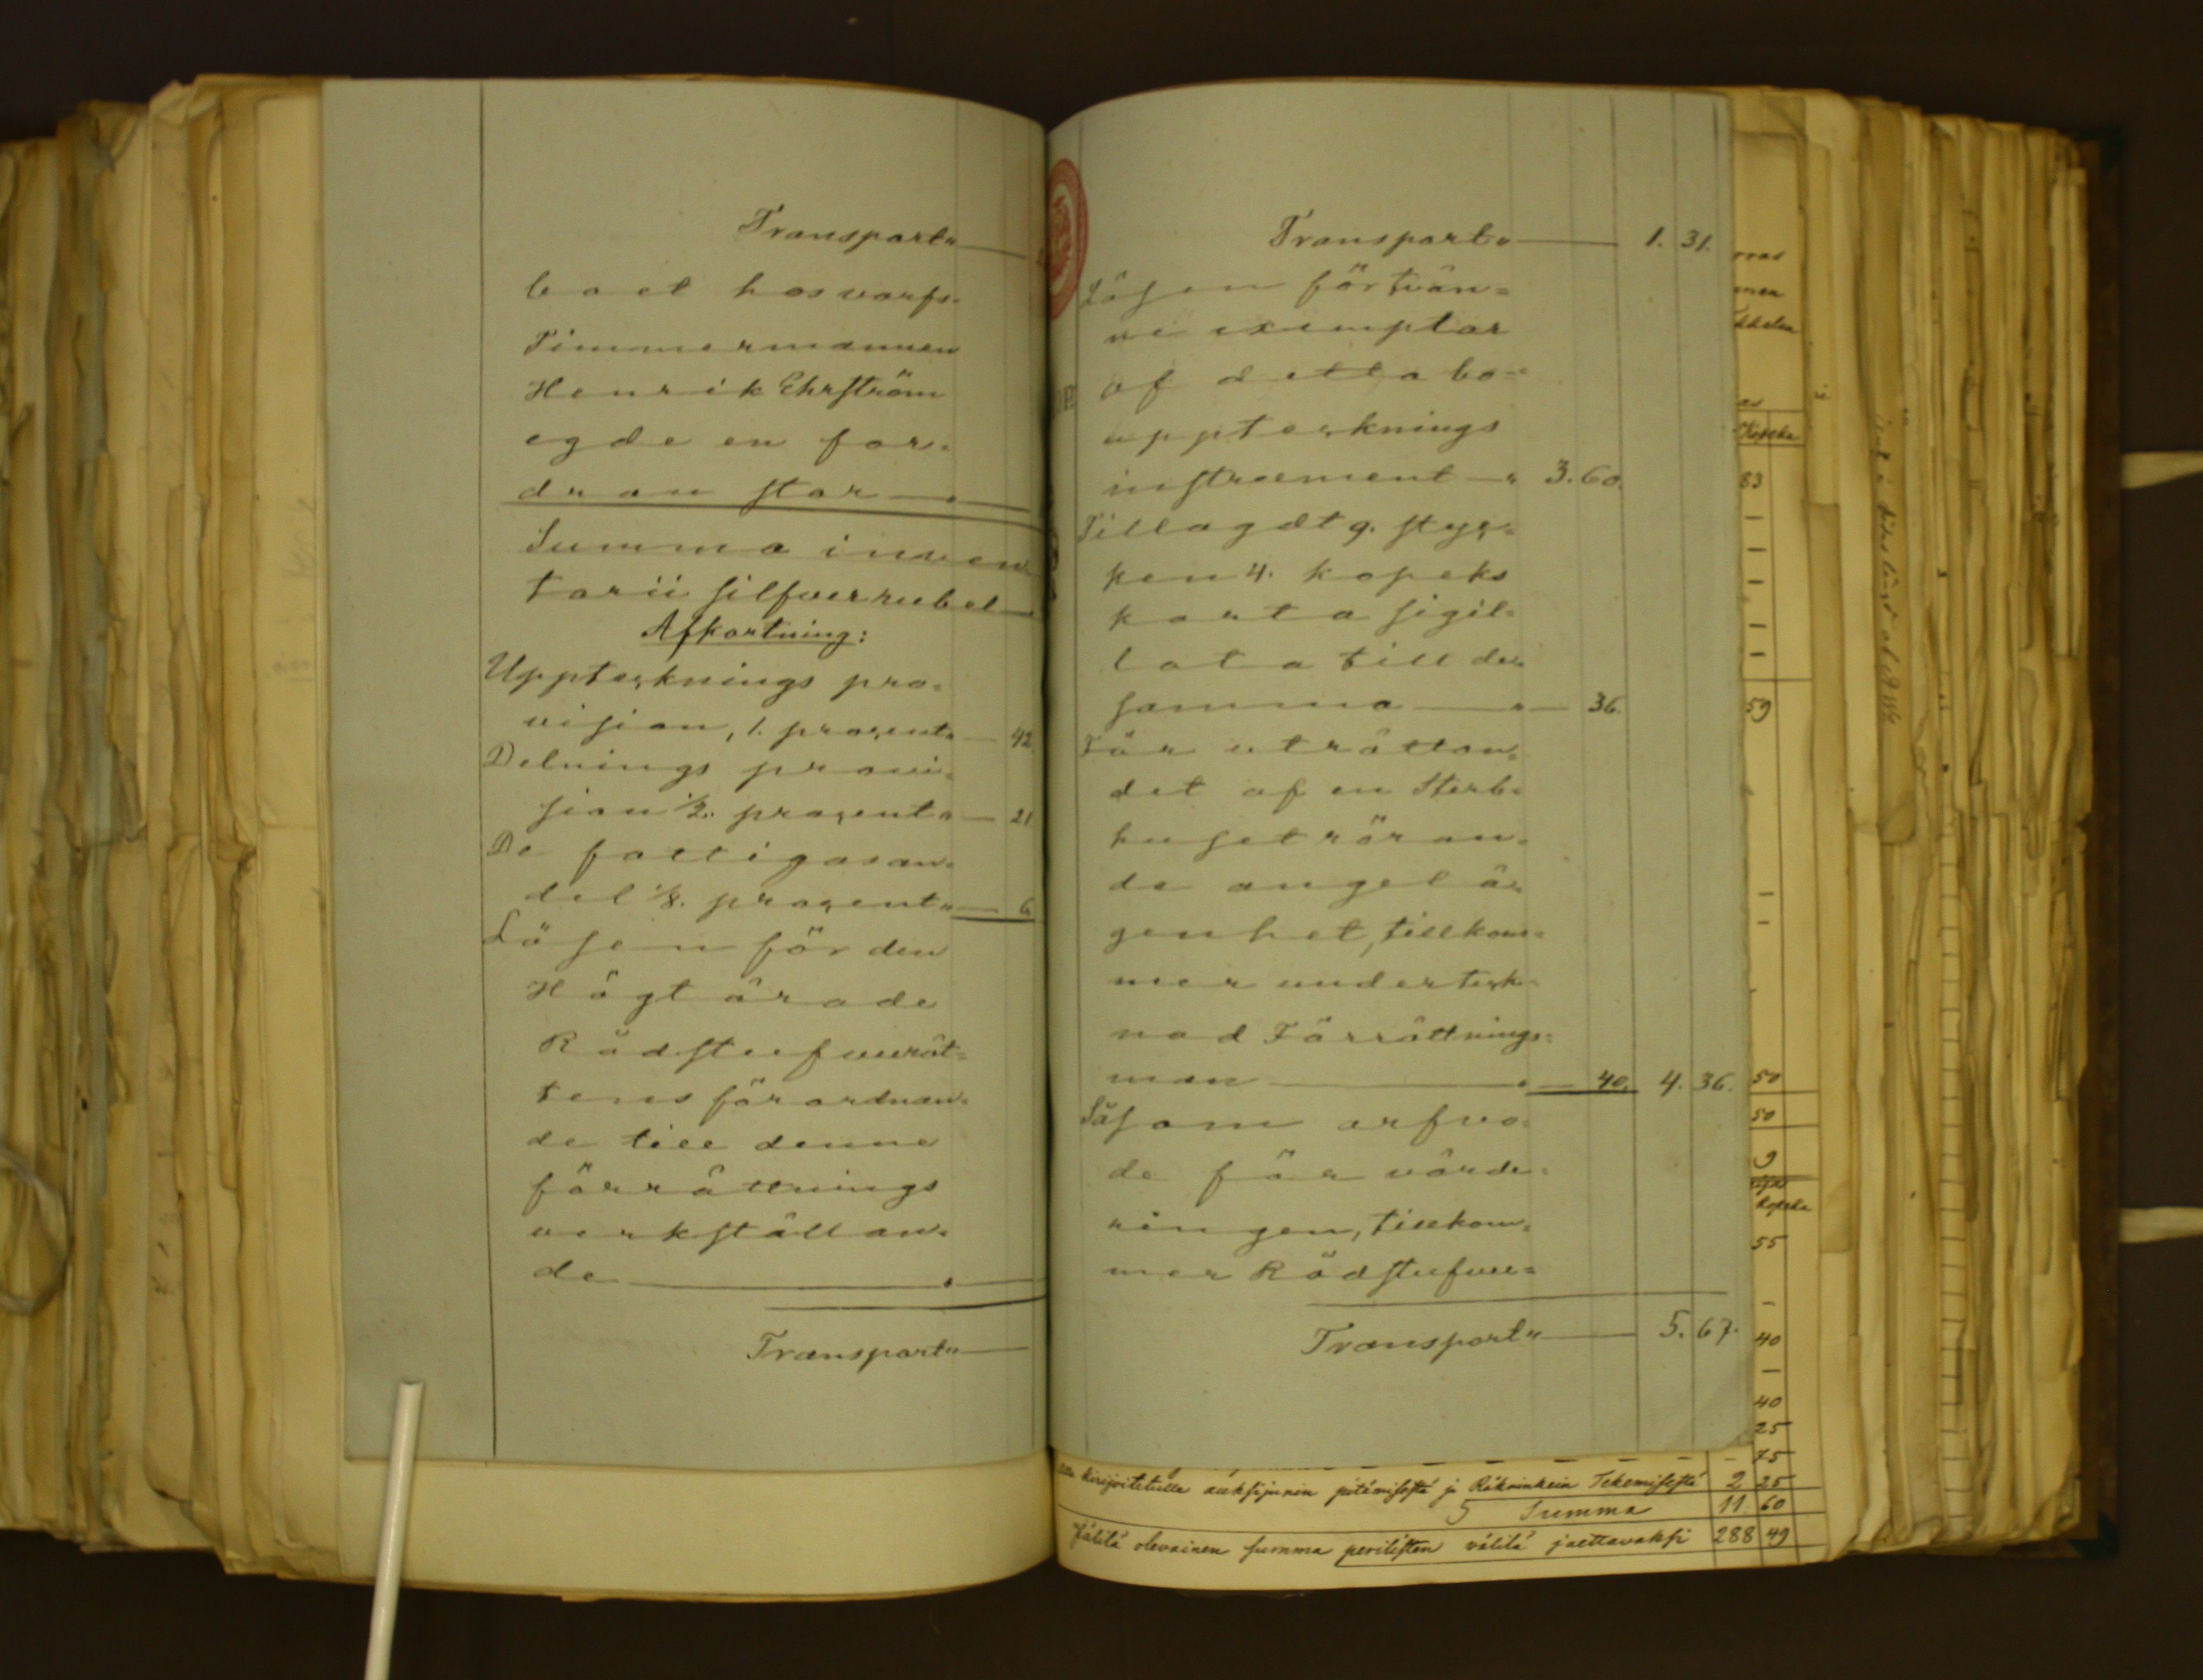 Transport„
boet hos varfs-
Timmermannen
Henrik Ehrström
egde en for-
dran stor
Summa inven
tarii silfverrubel
Afkortning:
Uppteknings pro-
vision, 1. prosent„ 42.
Delnings provi-
sion 1/2. prosent„ 21
De fattigas an-
del 1/8. prosent„ 6
Lösen för den
Högt ärade
Rådstufvurät-
tens förordnan-
de till denne
förrättnings
verkställan-
de
Transport„
Transport„ 1. 31.
Lösen för tvän-
ne exemplar
af detta bo-
uppteknings
instrument „ 3. 60.
Tillagdt 9. styc-
ken 4. kopeks
karta sigil-
lata till de-
samma „ 36.
För uträttan-
det af en Sterb-
huset röran-
de angelä-
genhet, tillkom-
mer undertek-
nad Förrättnings-
man „ 40. 4. 36.
Såsom arfvo-
de för värde-
ringen, tillkom-
mer Rådstufvu-
Transport„ 5. 67.
Kopeka
83
59
50
50
9
Kopeka
55
40
40
25
75
kirjoitetulle auksjunin pitämisestä ja Räkninkein Tekemisestä 2 25
5 Summa 11 60
Jälilä olevainen summa perilisten välilä jaettavaksi 288 49